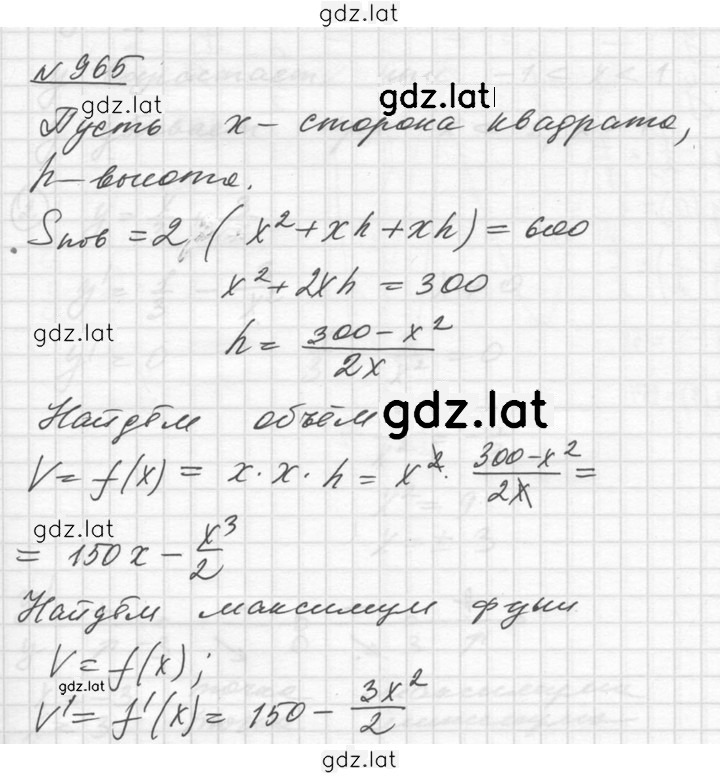 gdz.lat
№ 965
gdz.lat
gdz.lat
Пусть x – сторона квадрата,
h – высота.
Sпов = 2 (x² + xh + xh) = 600
x² + 2xh = 300
gdz.lat
h = (300 – x²)/(2x)
Найдём объём
gdz.lat
V = f(x) = x · x · h = x² · (300 – x²)/(2x) =
gdz.lat
= 150x – x³/2
Найдём максимум функ
V = f(x);
gdz.lat
V' = f'(x) = 150 – 3x²/2
gdz.lat